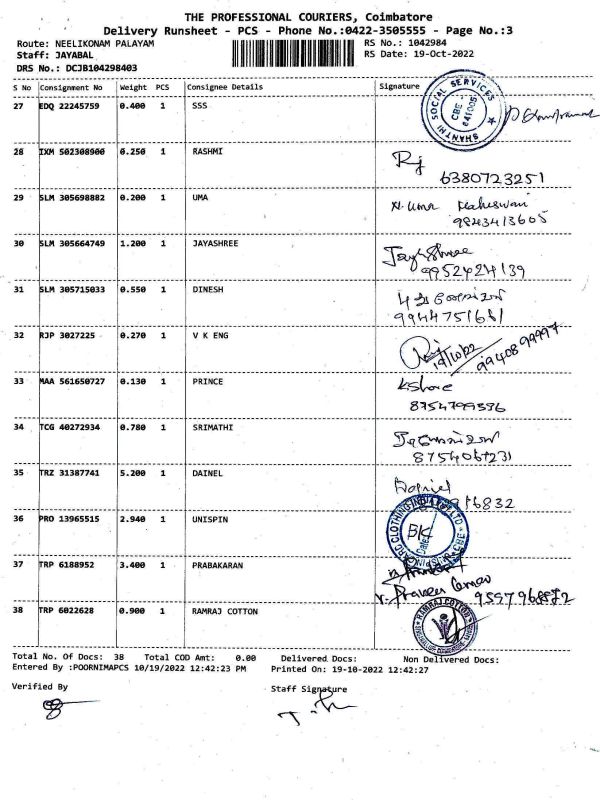 THE PROFESSIONAL COURIERS, Coimbatore
Delivery Runsheet - PCS - Phone No.:0422-3505555 - Page No.:3
Route: NEELIKONAM PALAYAM
RS No.: 1042984
Staff: JAYABAL
RS Date: 19-Oct-2022
DRS No.: DCJB104298403
S No Consignment No Weight PCS Consignee Details Signature
27 EDQ 22245759 0.400 1 SSS
SHANTHI SOCIAL SERVICES CBE - 641005
28 IXM 502308900 0.250 1 RASHMI
6380723251
29 SLM 305698882 0.200 1 UMA
N. Uma Maheswari
9843413605
30 SLM 305664749 1.200 1 JAYASHREE
JayaShree
9952424139
31 SLM 305715033 0.550 1 DINESH
32 RJP 3027225 0.270 1 V K ENG
19/10/22
33 MAA 561650727 0.130 1 PRINCE
Kshore
34 TCG 40272934 0.780 1 SRIMATHI
35 TRZ 31387741 5.200 1 DAINEL
Daniel
36 PRO 13965515 2.940 1 UNISPIN
37 TRP 6188952 3.400 1 PRABAKARAN
38 TRP 6022628 0.900 1 RAMRAJ COTTON
RAMRAJ COTTON
Total No. Of Docs: 38 Total COD Amt: 0.00 Delivered Docs: Non Delivered Docs:
Entered By :POORNIMAPCS 10/19/2022 12:42:23 PM Printed On: 19-10-2022 12:42:27
Verified By Staff Signature